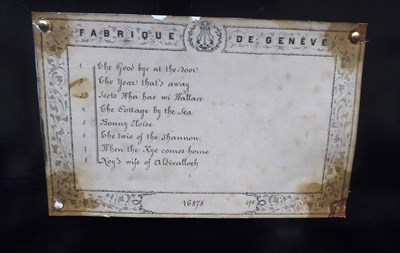 FABRIQUE DE GENÈVE
1 The Good bye at the door
2 The Year that's away
3 Scots Wha hae wi Wallace
4 The Cottage by the Sea
5 Bonny Eloise
6 The twie of the Shannon
7 When the Kye comes home
8 Roy's wife of Aldivalloch
16878